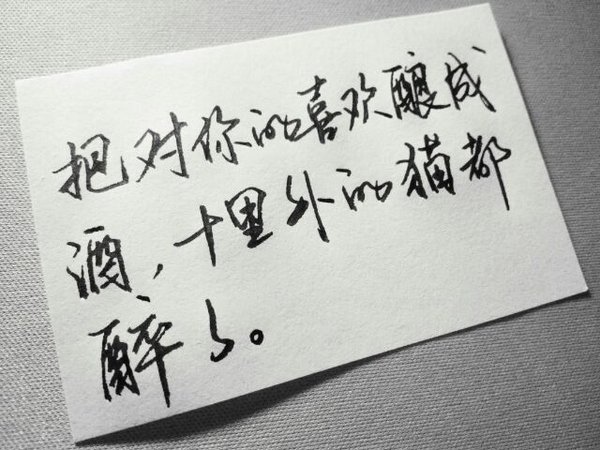 把对你的喜欢酿成
酒，十里外的猫都
醉了。